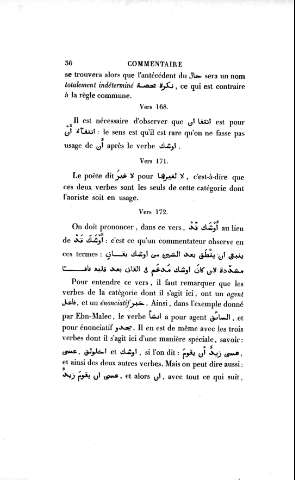 36 COMMENTAIRE
se trouvera alors que l'antécédent du حال sera un nom
totalement indéterminé نكرة محضة, ce qui est contraire
à la règle commune.
Vers 168.
Il est nécessaire d'observer que انتفا ان est pour
انتفاء أن : le sens est qu'il est rare qu'on ne fasse pas
usage de أن après le verbe اوشك.
Vers 171.
Le poëte dit لا غير pour لا غيرهما, c'est-à-dire que
ces deux verbes sont les seuls de cette catégorie dont
l'aoriste soit en usage.
Vers 172.
On doit prononcer, dans ce vers, أوشك قد au lieu
de أوشك قد : c'est ce qu'un commentateur observe en
ces termes : ينبغي ان ينطق بعد الشين من اوشك بقاف
مشددة لان كان اوشك مدغم في القاف بعد قلبه قافا
Pour entendre ce vers, il faut remarquer que les
verbes de la catégorie dont il s'agit ici, ont un agent
فاعل, et un énonciatif خبر. Ainsi, dans l'exemple donné
par Ebn-Malec, le verbe انشأ a pour agent السائق, et
pour énonciatif يحدو. Il en est de même avec les trois
verbes dont il s'agit ici d'une manière spéciale, savoir:
عسى, اخلولق et اوشك, si l'on dit : عسى زيد أن يقوم,
et ainsi des deux autres verbes. Mais on peut dire aussi:
عسى ان يقوم زيد, et alors ان, avec tout ce qui suit,